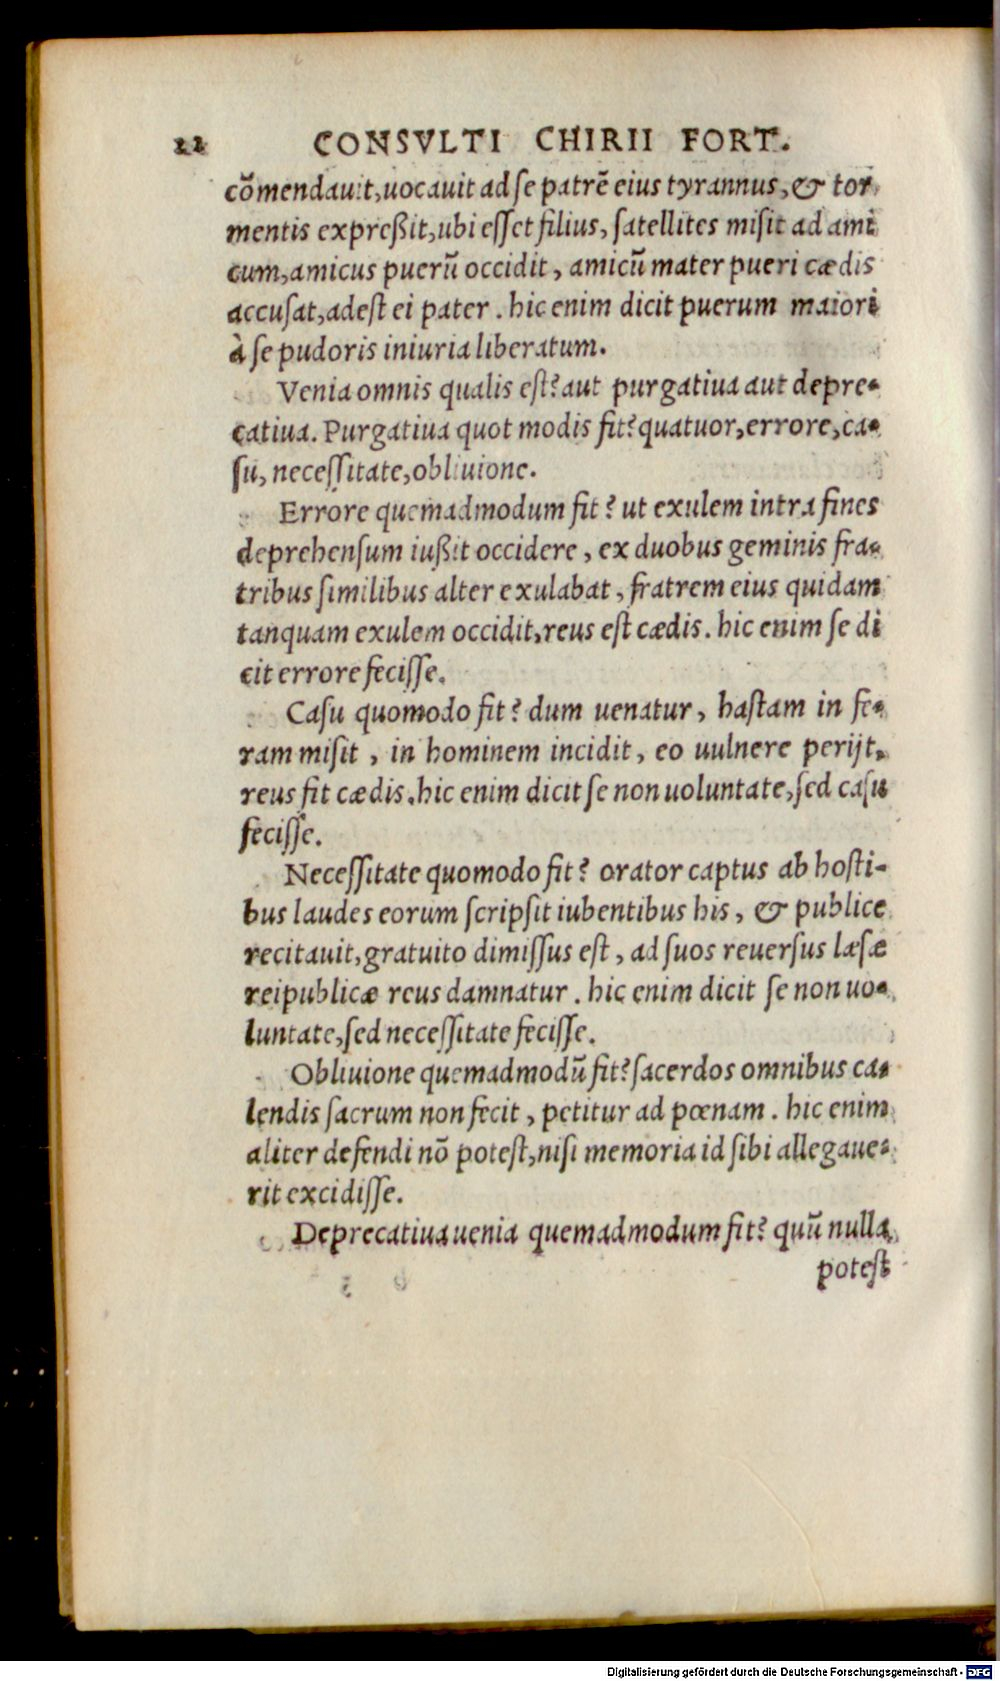 22 CONSVLTI CHIRII FORT.
cõmendauit,uocauit ad se patrẽ eius tyrannus,& tor
mentis expreßit,ubi esset filius, satellites misit ad ami
cum,amicus puerũ occidit, amicũ mater pueri cædis
accusat,adest ei pater. hic enim dicit puerum maiori
à se pudoris iniuria liberatum.
Venia omnis qualis est? aut purgatiua aut depre-
catiua. Purgatiua quot modis fit? quatuor,errore,ca-
su, necessitate,obliuione.
Errore quemadmodum fit? ut exulem intra fines
deprehensum iußit occidere, ex duobus geminis fra-
tribus similibus alter exulabat, fratrem eius quidam
tanquam exulem occidit,reus est cædis. hic enim se di
cit errore fecisse.
Casu quomodo fit? dum uenatur, hastam in fe-
ram misit, in hominem incidit, eo uulnere perijt,
reus fit cædis.hic enim dicit se non uoluntate,sed casu
fecisse.
Necessitate quomodo fit? orator captus ab hosti-
bus laudes eorum scripsit iubentibus his, & publice
recitauit,gratuito dimissus est, ad suos reuersus læsæ
reipublicæ reus damnatur. hic enim dicit se non uo-
luntate,sed necessitate fecisse.
Obliuione quemadmodũ fit? sacerdos omnibus ca-
lendis sacrum non fecit, petitur ad pœnam. hic enim
aliter defendi nõ potest,nisi memoria id sibi allegaue-
rit excidisse.
Deprecatiua uenia quemadmodum fit? quũ nulla
potest
Digitalisierung gefördert durch die Deutsche Forschungsgemeinschaft - DFG